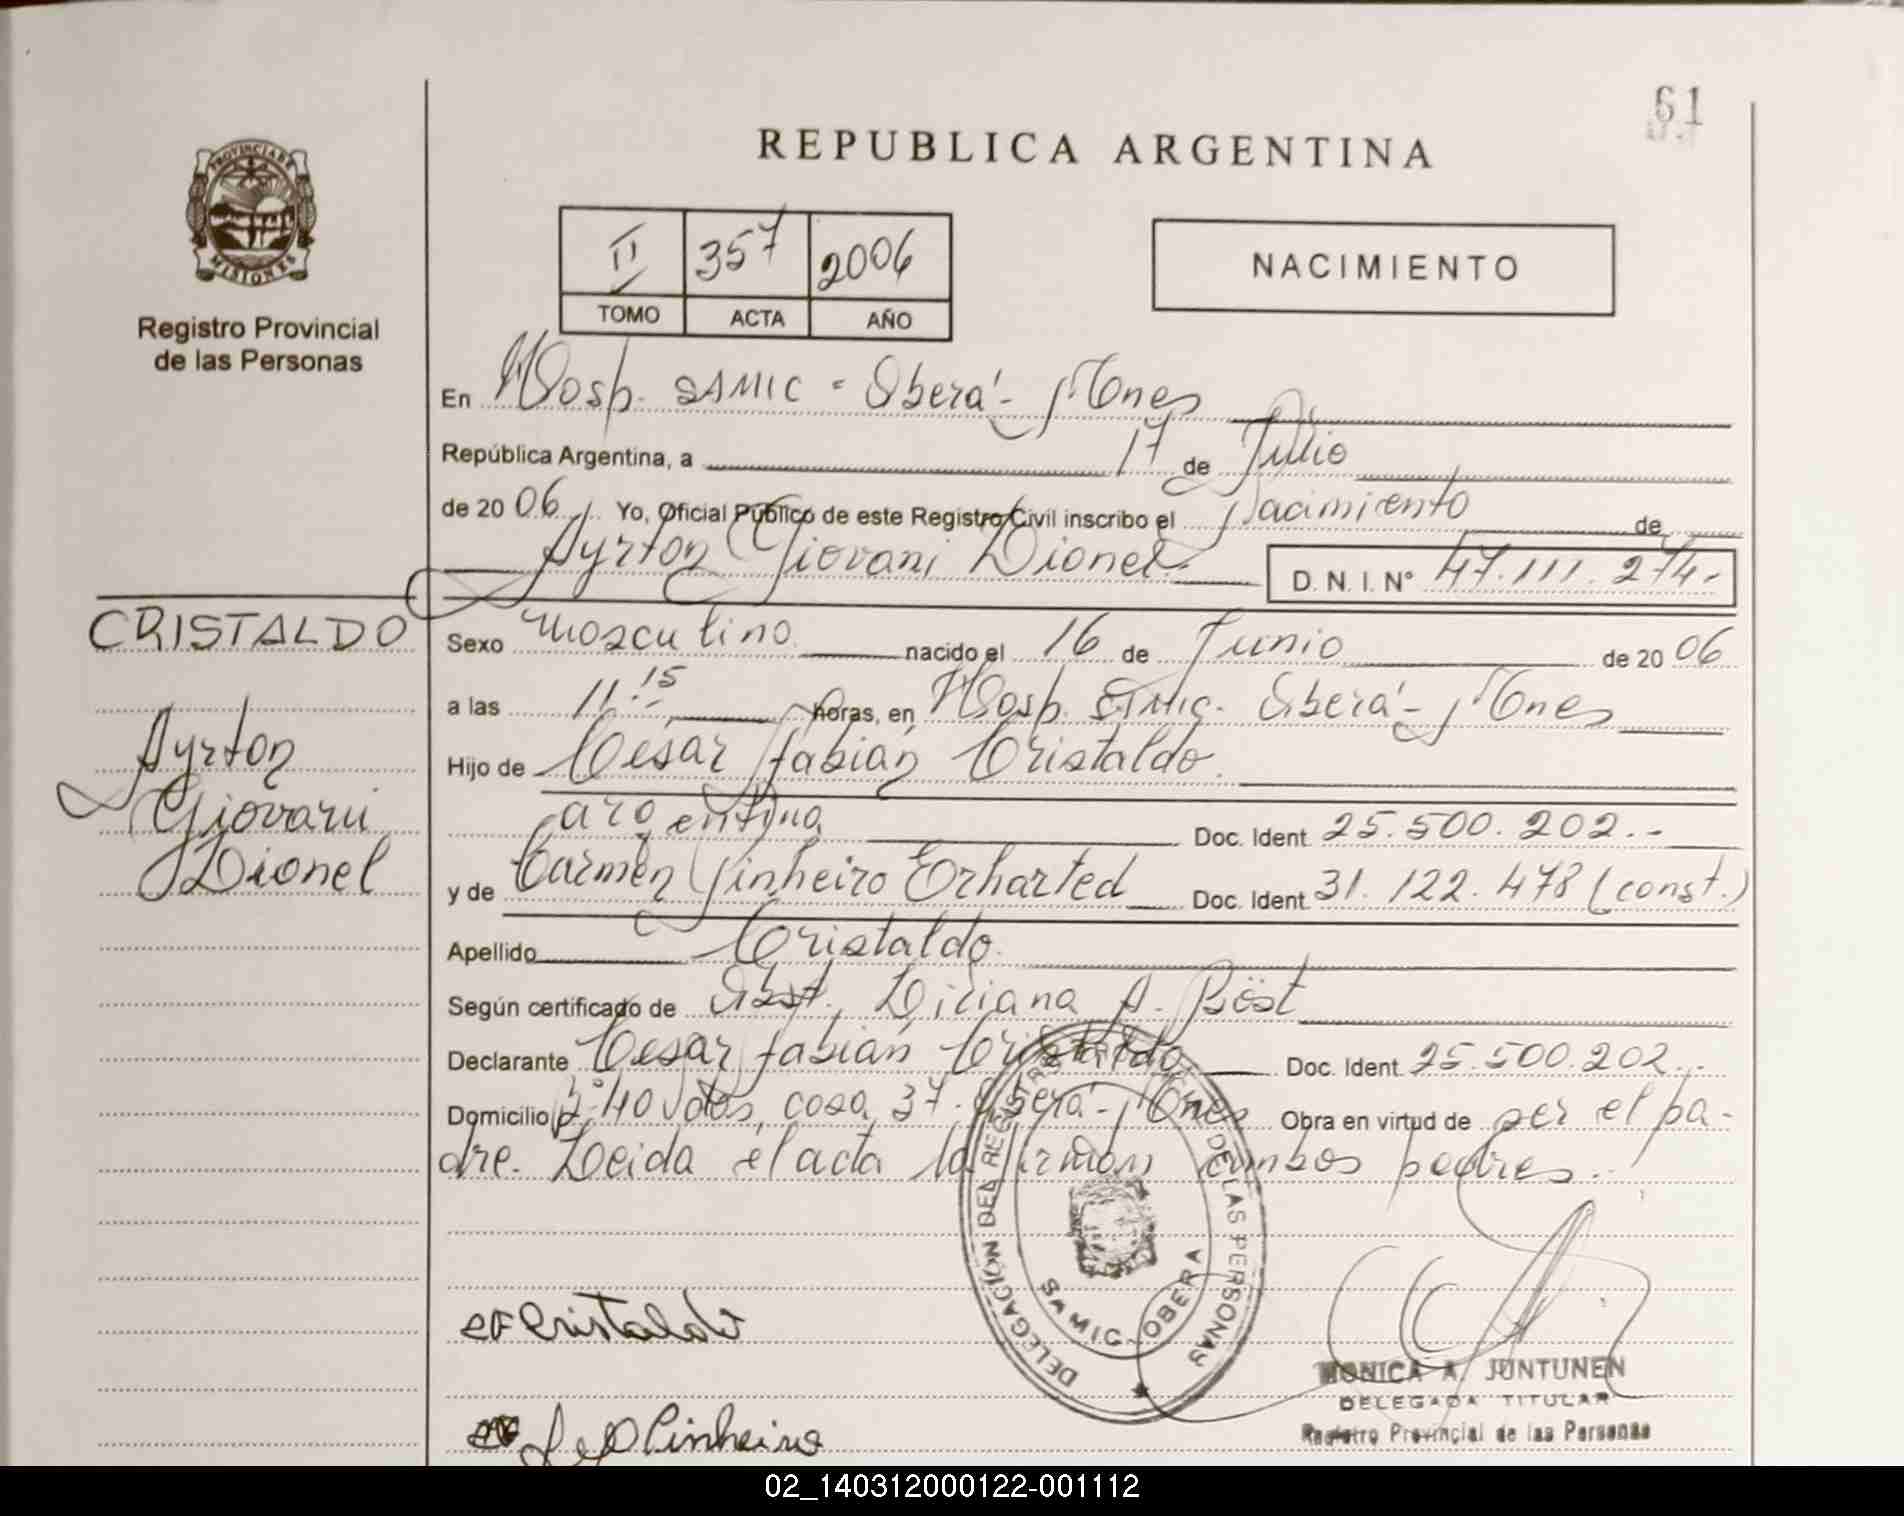 61
REPUBLICA ARGENTINA
PROVINCIA DE
MISIONES
Registro Provincial
de las Personas
II 357 2006
TOMO ACTA AÑO
NACIMIENTO
En Hosp. SAMIC - Oberá - Mnes
República Argentina, a 17 de Julio
de 20 06 Yo, Oficial Público de este Registro Civil inscribo el Nacimiento de
Ayrton Giovani Lionel D. N. I. N° 47.111.274.-
CRISTALDO
Ayrton
Giovani
Lionel
Sexo masculino nacido el 16 de Junio de 20 06
a las 11:15 horas, en Hosp. SAMIC. Oberá - Mnes
Hijo de César Fabián Cristaldo
argentina Doc. Ident. 25.500.202.-
y de Carmen Pinheiro Erharted Doc. Ident. 31.122.478 (const.)
Apellido Cristaldo
Según certificado de Obst. Liliana A. Böst
Declarante César Fabián Cristaldo Doc. Ident. 25.500.202.-
Domicilio 140 vdas, casa 37. Oberá - Mnes Obra en virtud de ser el pa-
dre. Leida el acta la firman ambos padres.
DELEGACIÓN DEL REGISTRO PROVINCIAL DE LAS PERSONAS
SAMIC - OBERA
Cristaldo
Pinheiro
MONICA A. JUNTUNEN
DELEGADA TITULAR
Registro Provincial de las Personas
02_140312000122-001112